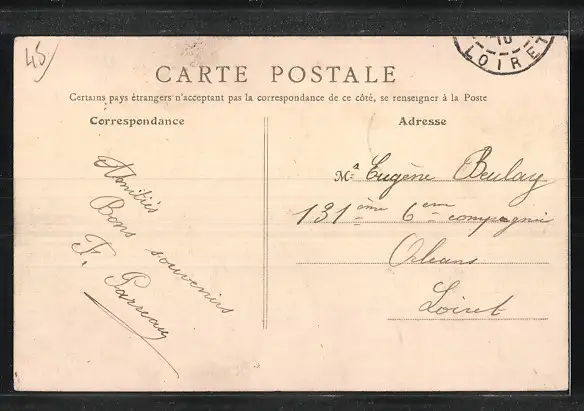 45
10
LOIRET
CARTE POSTALE
Certains pays étrangers n'acceptant pas la correspondance de ce côté, se renseigner à la Poste
Correspondance
Adresse
Amitiés
Bons souvenirs
F.
M. Eugène Beulay
131ème 6em compagnie
Orleans
Loiret